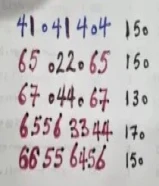 41041404 150
65 022065 150
67 044067 130
65563344 170
66556456 150